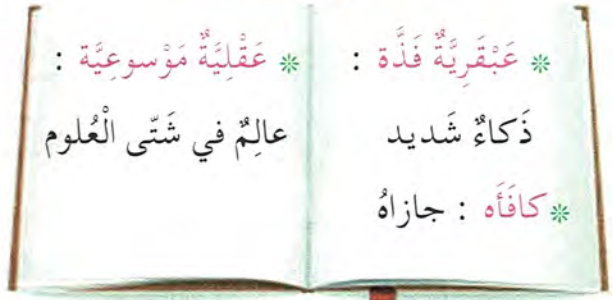 * عَبْقَرِيَّةٌ فَذَّة :
ذَكاءٌ شَديد
* كافَأَه : جازاهُ
* عَقْلِيَّةٌ مَوْسوعِيَّة :
عالِمٌ في شَتّى الْعُلوم